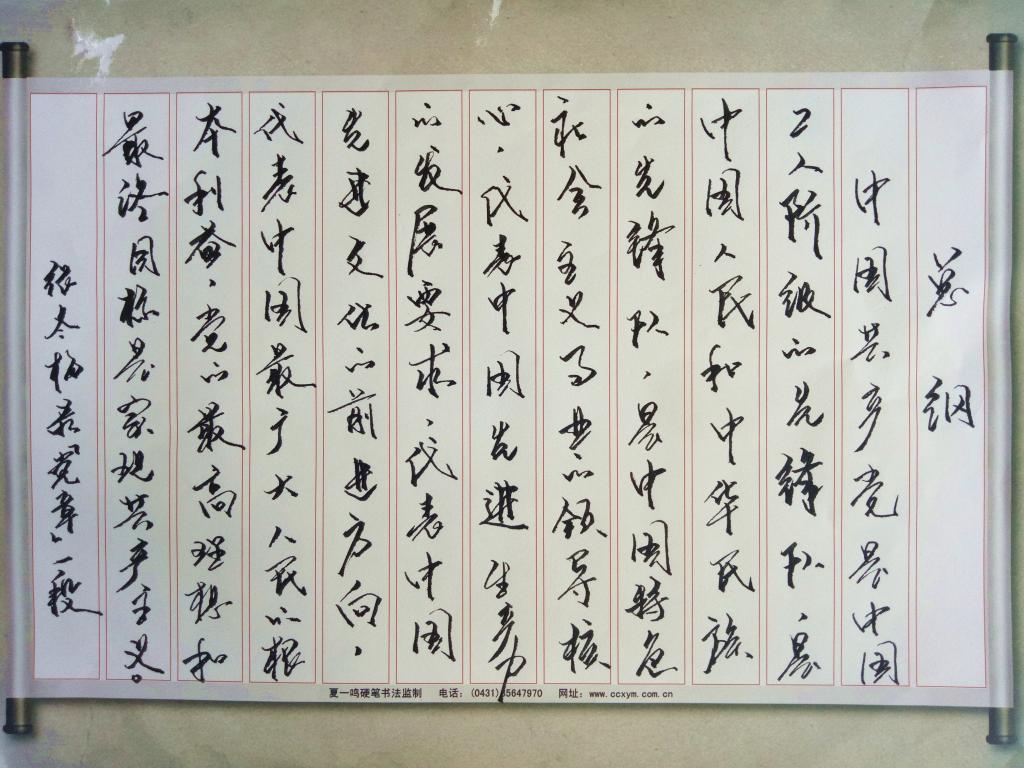 总纲
中国共产党是中国
工人阶级的先锋队、是
中国人民和中华民族
的先锋队、是中国特色
社会主义事业的领导核
心、代表中国先进生产力
的发展要求、代表中国
先进文化的前进方向、
代表中国最广大人民的根
本利益、党的最高理想和
最终目标是实现共产主义。
张冬梅录「党章」一段
夏一鸣硬笔书法监制 电话:(0431)85647970 网址:www.ccxym.com.cn